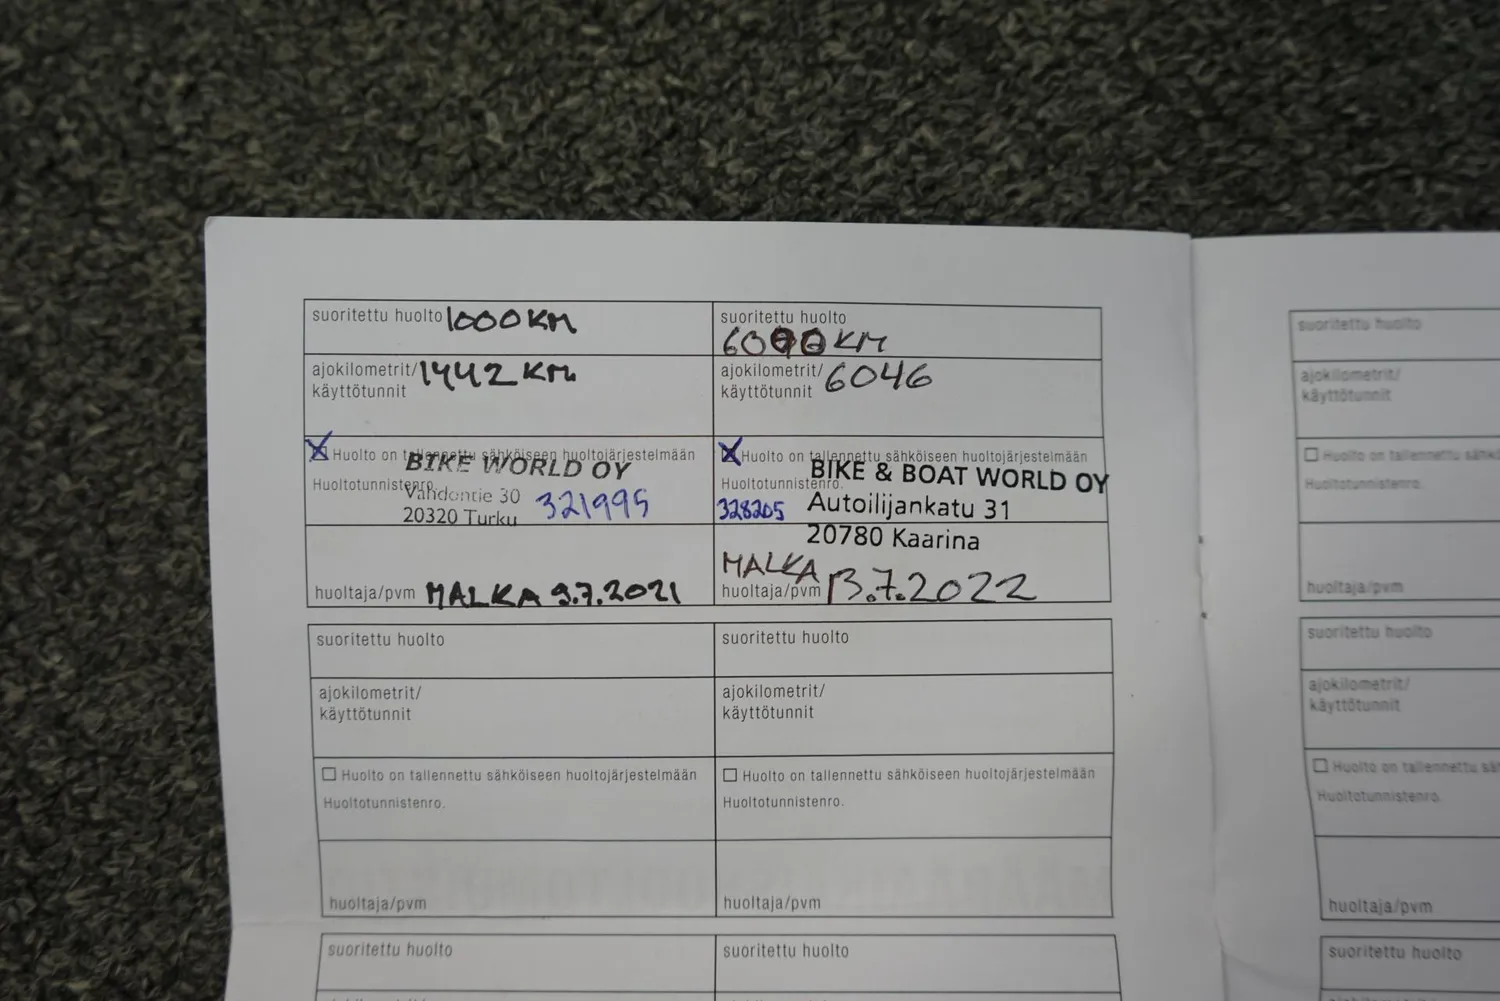 suoritettu huolto 1000 KM
ajokilometrit/ 1442 KM
käyttötunnit
Huolto on tallennettu sähköiseen huoltojärjestelmään
BIKE WORLD OY
Huoltotunnistenro.
Vahdontie 30 321995
20320 Turku
huoltaja/pvm MALKA 9.7.2021
suoritettu huolto
6000 KM
ajokilometrit/ 6046
käyttötunnit
Huolto on tallennettu sähköiseen huoltojärjestelmään
BIKE & BOAT WORLD OY
Huoltotunnistenro.
328205 Autoilijankatu 31
20780 Kaarina
MALKA
huoltaja/pvm 13.7.2022
suoritettu huolto
ajokilometrit/
käyttötunnit
Huolto on tallennettu sähköiseen huoltojärjestelmään
Huoltotunnistenro.
huoltaja/pvm
suoritettu huolto
ajokilometrit/
käyttötunnit
Huolto on tallennettu sähköiseen huoltojärjestelmään
Huoltotunnistenro.
huoltaja/pvm
suoritettu huolto
suoritettu huolto
suoritettu huolto
ajokilometrit/
käyttötunnit
Huolto on tallennettu
Huoltotunnistenro.
huoltaja/pvm
suoritettu huolto
ajokilometrit/
käyttötunnit
Huolto on tallennettu
Huoltotunnistenro.
huoltaja/pvm
suoritettu huolto